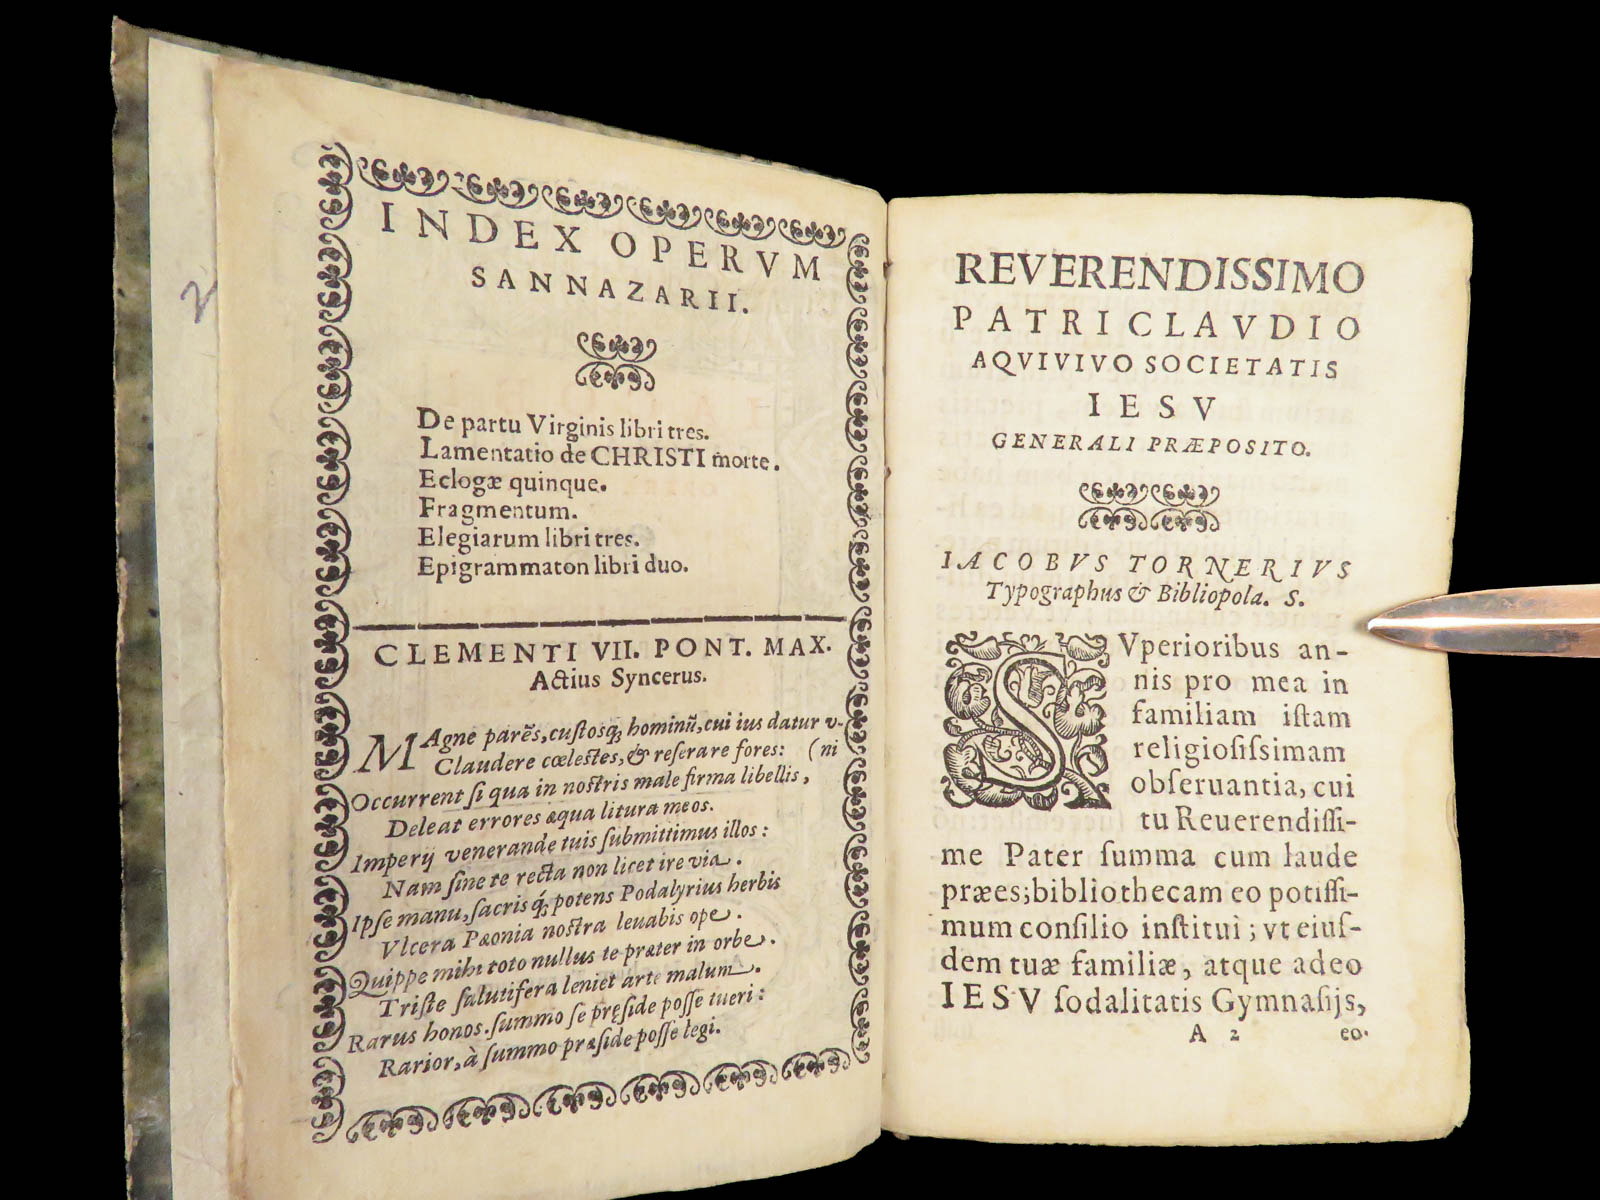 2
INDEX OPERVM
SANNAZARII.
De partu Virginis libri tres.
Lamentatio de CHRISTI morte.
Eclogæ quinque.
Fragmentum.
Elegiarum libri tres.
Epigrammaton libri duo.
CLEMENTI VII. PONT. MAX.
Actius Syncerus.
MAgne parẽs, cuſtosq; hominũ, cui ius datur v-
Claudere cœlestes, & reſerare fores: (ni
Occurrent ſi qua in nostris male firma libellis,
Deleat errores æqua litura meos.
Imperij venerande tuis ſubmittimus illos:
Nam ſine te recta non licet ire via.
Ipſe manu, ſacrisq́; potens Podalyrius herbis
Vlcera Pæonia nostra leuabis ope.
Quippe mihi toto nullus te præter in orbe.
Triſte ſalutifera leniet arte malum.
Rarus honos. ſummo ſe pręſide poſſe tueri:
Rarior, à ſummo præſide poſſe legi.
REVERENDISSIMO
PATRI CLAVDIO
AQVIVIVO SOCIETATIS
IESV
GENERALI PRÆPOSITO.
IACOBVS TORNERIVS
Typographus & Bibliopola. S.
SVperioribus an-
nis pro mea in
familiam iſtam
religioſiſsimam
obſeruantia, cui
tu Reuerendiſſi-
me Pater ſumma cum laude
præes; bibliothecam eo potiſſi-
mum conſilio inſtitui; vt eiuſ-
dem tuæ familiæ, atque adeo
IESV ſodalitatis Gymnaſijs,
A 2 eo.